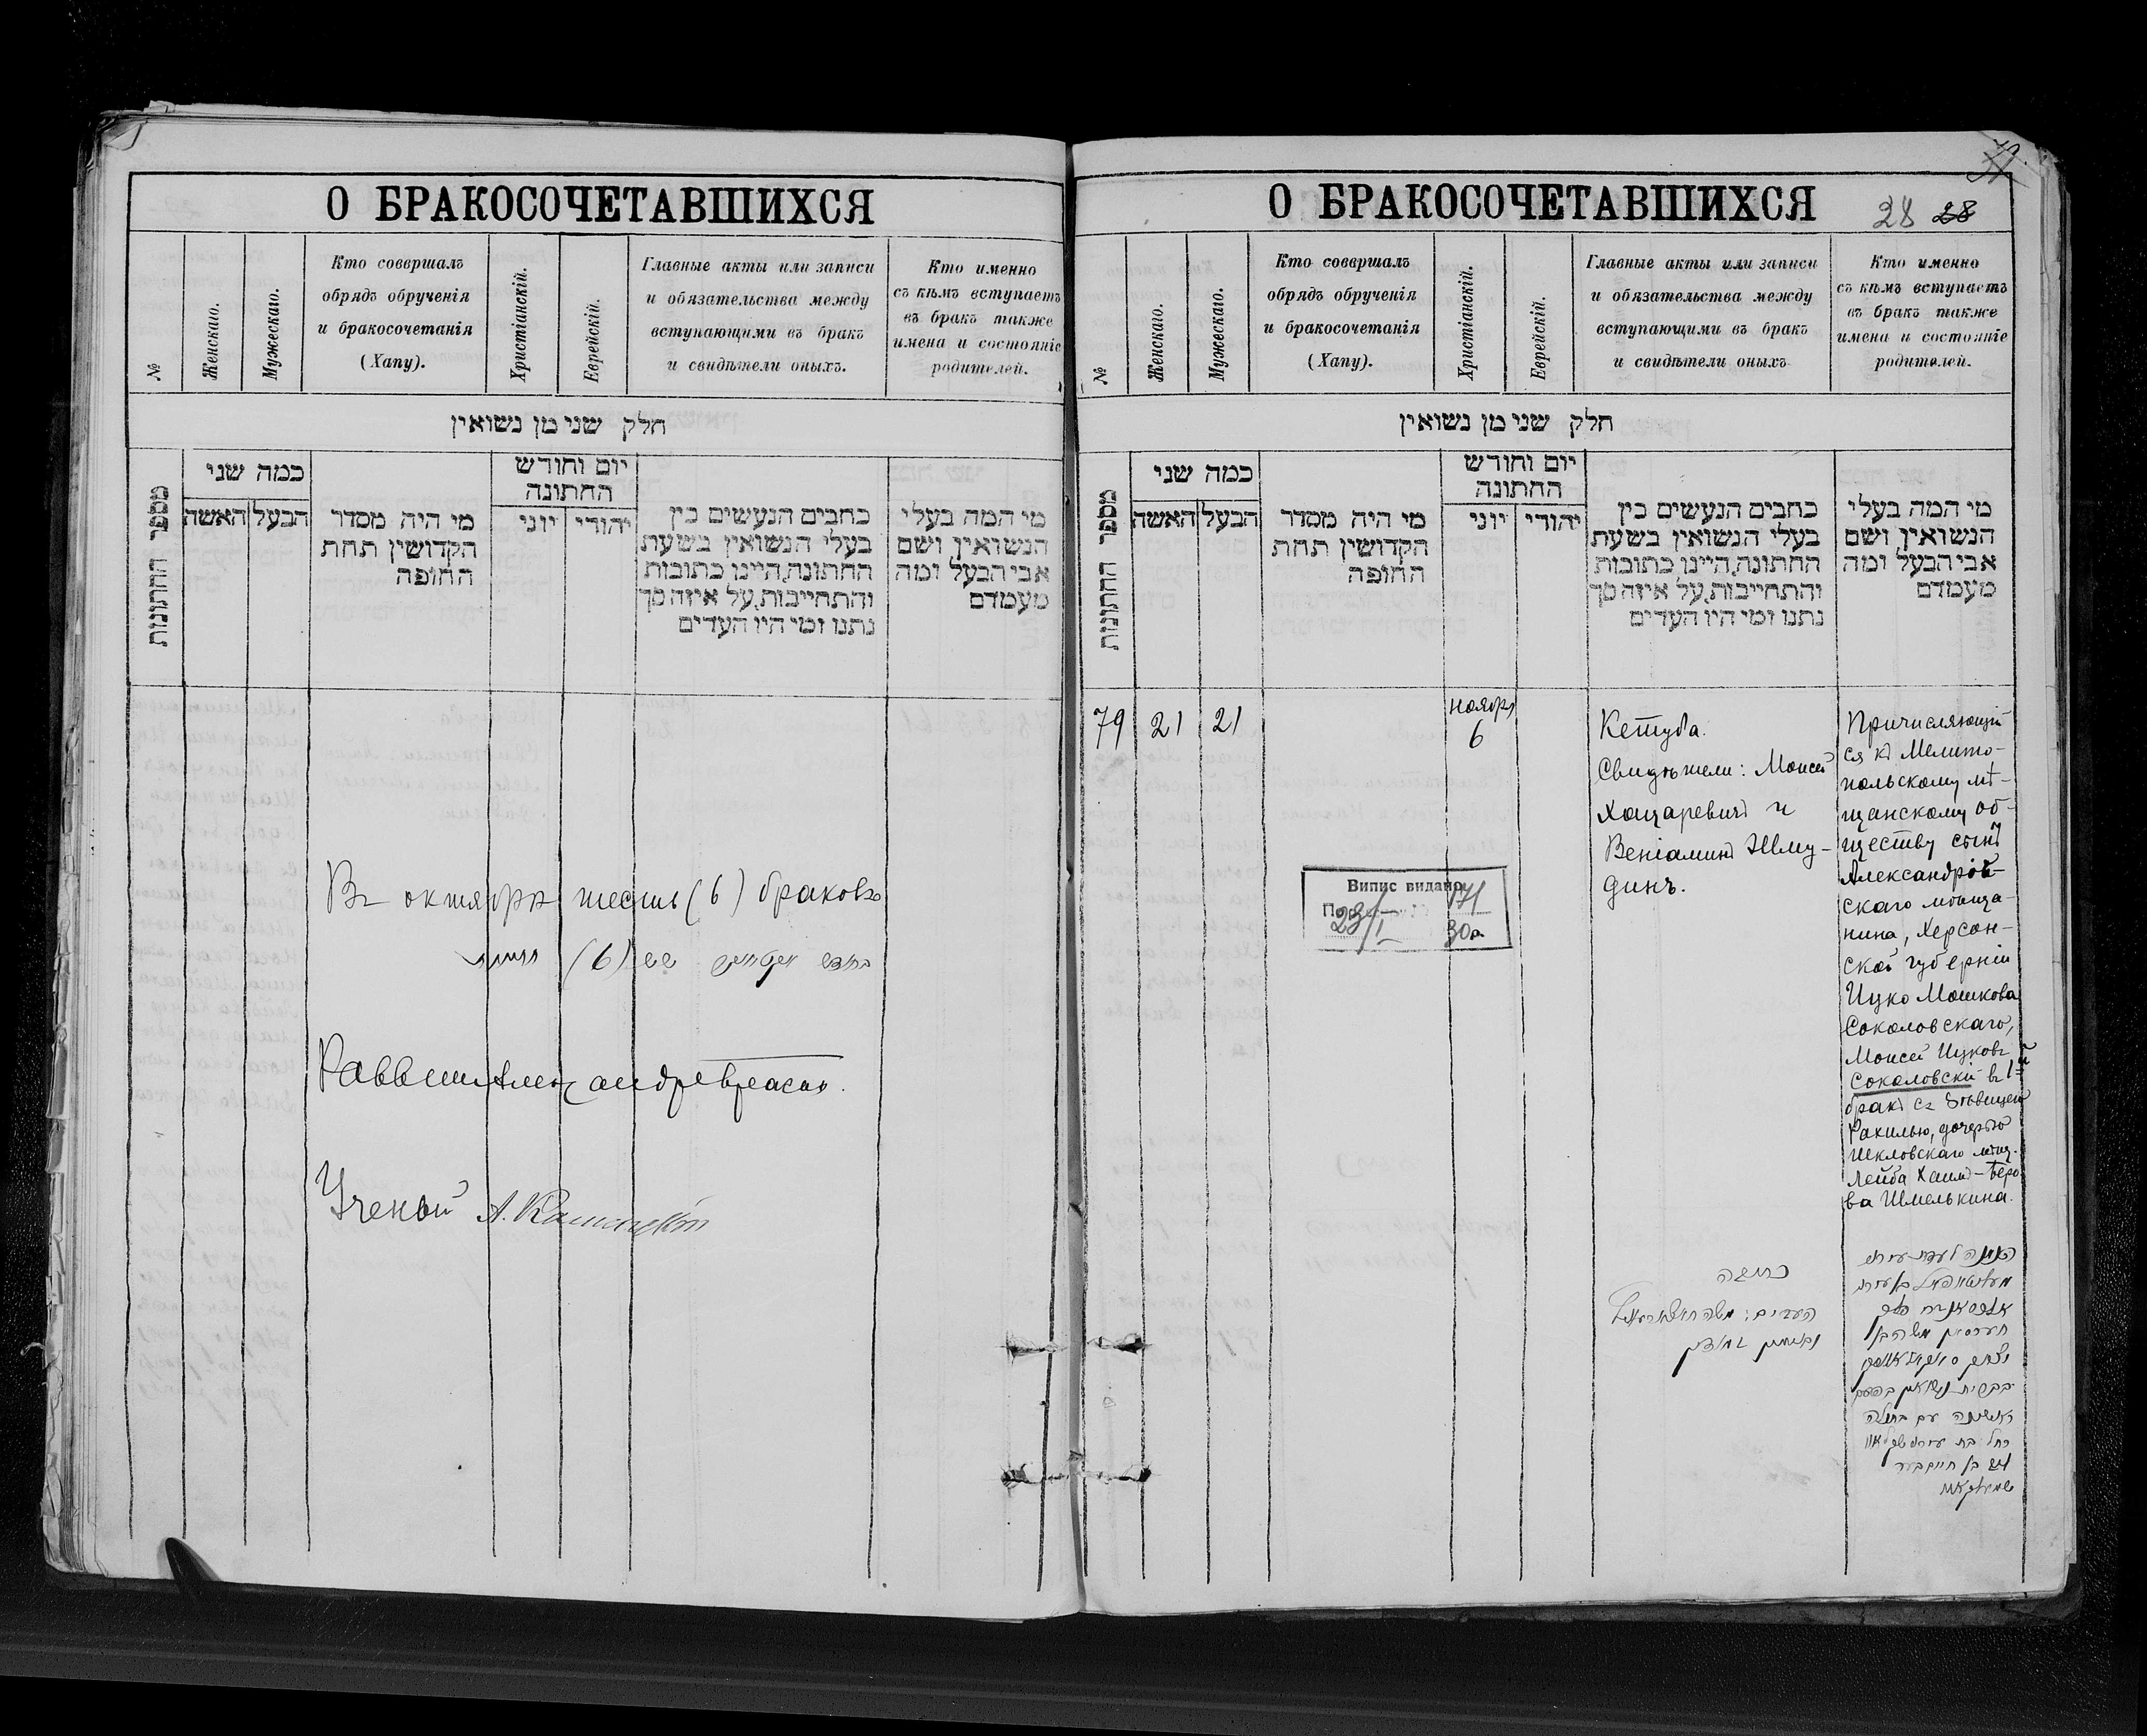 О БРАКОСОЧЕТАВШИХСЯ
№
Женскаго.
Мужескаго.
Кто совершалъ
обрядъ обрученія
и бракосочетанія
(Хапу).
Христіанскій.
Еврейскій.
Главные акты или записи
и обязательства между
вступающими въ бракъ
и свидѣтели оныхъ.
Кто именно
съ кѣмъ вступаетъ
въ бракъ также
имена и состояніе
родителей.
חלק שני מן נשואין
מספר החתונות
כמה שני
הבעל האשה
מי היה מסדר
הקדושין תחת
החופה
יום וחודש
החתונה
יהודי יוני
כתבים הנעשים בין
בעלי הנשואין בשעת
החתונה, היינו כתובות
והתחייבות, על איזה סך
נתנו ומי היו העדים
מי המה בעלי
הנשואין ושם
אבי הבעל ומה
מעמדם
Въ октябрѣ шесть (6) браковъ
(6) שש
Раввинъ
Ученый А.
О БРАКОСОЧЕТАВШИХСЯ
28 28
№
Женскаго.
Мужескаго.
Кто совершалъ
обрядъ обрученія
и бракосочетанія
(Хапу).
Христіанскій.
Еврейскій.
Главные акты или записи
и обязательства между
вступающими въ бракъ
и свидѣтели оныхъ
Кто именно
съ кѣмъ вступаетъ
въ бракъ также
имена и состояніе
родителей.
חלק שני מן נשואין
מספר החתונות
כמה שני
הבעל האשה
מי היה מסדר
הקדושין תחת
החופה
יום וחודש
החתונה
יהודי יוני
כתבים הנעשים בין
בעלי הנשואין בשעת
החתונה, היינו כתובות
והתחייבות, על איזה סך
נתנו ומי היו העדים
מי המה בעלי
הנשואין ושם
אבי הבעל ומה
מעמדם
79 21 21
ноября
6
Кетуба.
Свидѣтели: Моисей
Хацаревичъ и
Веніаминъ Шму-
динъ.
Випис видано
171
23/I 30р
Причисляющій
ся къ Мелито-
польскому мѣ-
щанскому об-
ществу сынъ
Александров-
скаго мѣща-
нина, Херсон-
ской губерніи
Ицко Мошкова
Соколовскаго,
Моисей Ицковъ
Соколовскій въ 1-й
бракъ съ дѣвицей
Рахилью, дочерью
Шкловскаго мѣщ.
Лейба Хаимъ-Беро-
ва Шмелькина.
כתובה
העדים: משה